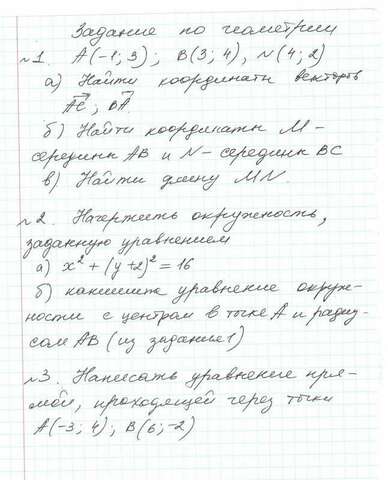 Задание по геометрии
№1. А(-1; 3); В(3; 4), N(4; 2)
а) Найти координаты векторов
АС; ВА.
б) Найти координаты М-
середины АВ и N-середины ВС
в) Найти длину MN.
№2. Начертить окружность,
заданную уравнением
а) x² + (y+2)² = 16
б) напишите уравнение окруж-
ности с центром в точке А и радиу-
сом АВ (из задания 1)
№3. Написать уравнение пря-
мой, проходящей через точки
А(-3; 4); В(6; -2)